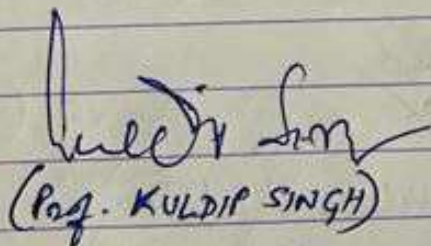 Kuldip Singh
(Prof. KULDIP SINGH)